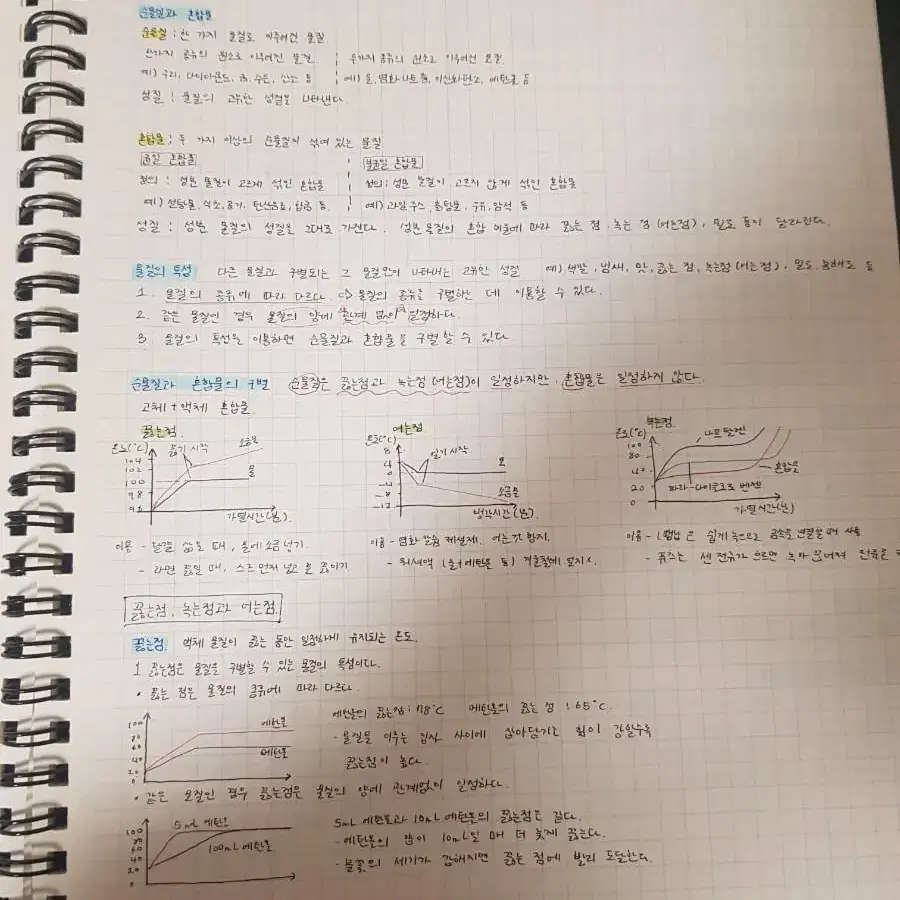 순물질과 혼합물
순물질 : 한 가지 물질로 이루어진 물질
한가지 종류의 원소로 이루어진 물질. 두가지 종류의 원소로 이루어진 물질
예) 구리, 다이아몬드, 금, 수은, 산소 등 예) 물, 염화나트륨, 이산화탄소, 에탄올 등
성질 : 물질의 고유한 성질을 나타낸다.
혼합물 : 두 가지 이상의 순물질이 섞여 있는 물질
균일 혼합물 불균일 혼합물
정의 : 성분 물질이 고르게 섞인 혼합물 정의 : 성분 물질이 고르지 않게 섞인 혼합물
예) 설탕물, 식초, 공기, 탄산음료, 합금 등. 예) 과일 주스, 흙탕물, 우유, 암석 등
성질 : 성분 물질의 성질을 그대로 가진다. 성분 물질의 혼합 비율에 따라 끓는 점, 녹는 점(어는점), 밀도 등이 달라진다.
물질의 특성 다른 물질과 구별되는 그 물질만이 나타내는 고유한 성질 예) 색깔, 냄새, 맛, 끓는 점, 녹는점(어는점), 밀도, 용해도 등
1. 물질의 종류에 따라 다르다. ⇨ 물질의 종류를 구별하는 데 이용할 수 있다.
2. 같은 물질인 경우 물질의 양에 관계 없이 일정하다.
3. 물질의 특성을 이용하면 순물질과 혼합물을 구별 할 수 있다
순물질과 혼합물의 구별 순물질은 끓는점과 녹는점(어는점)이 일정하지만, 혼합물은 일정하지 않다.
고체 + 액체 혼합물
끓는점 어는점 녹는점
온도(°C) 끓기 시작 소금물 온도(°C) 얼기 시작 물 온도(°C) 나프탈렌
104 102 100 98 물 8 4 0 -4 -8 -12 소금물 100 80 40 20 0 혼합물
파라-다이클로로 벤젠
가열시간(분). 냉각시간(분). 가열시간(분)
이용 - 달걀 삶을 때, 물에 소금 넣기 이용 - 염화 칼슘 제설제. 어는 것 방지. 이용 - 땜납은 쉽게 녹으므로 금속을 연결할 때 사용
- 라면 끓일 때, 스프 먼저 넣고 물 끓이기 - 워셔액 (물+에탄올 등) 겨울철에 얼지 x - 퓨즈는 센 전류가 흐르면 녹아 끊어져 전류를
끓는점, 녹는점과 어는점.
끓는점. 액체 물질이 끓는 동안 일정하게 유지되는 온도.
1 끓는점은 물질을 구별할 수 있는 물질의 특성이다.
• 끓는 점은 물질의 종류에 따라 다르다.
100 80 60 40 20 0 에탄올 메탄올
에탄올의 끓는점 : 78°C 메탄올의 끓는 점 : 65°C.
- 물질을 이루는 입자 사이에 잡아당기는 힘이 강할수록
끓는점이 높다.
• 같은 물질인 경우 끓는점은 물질의 양에 관계없이 일정하다.
100 80 60 40 20 5mL 에탄올 100mL 에탄올
5mL 에탄올과 10mL 에탄올의 끓는점은 같다.
- 에탄올의 양이 10mL일 때 더 늦게 끓는다.
- 불꽃의 세기가 강해지면 끓는 점에 빨리 도달한다.